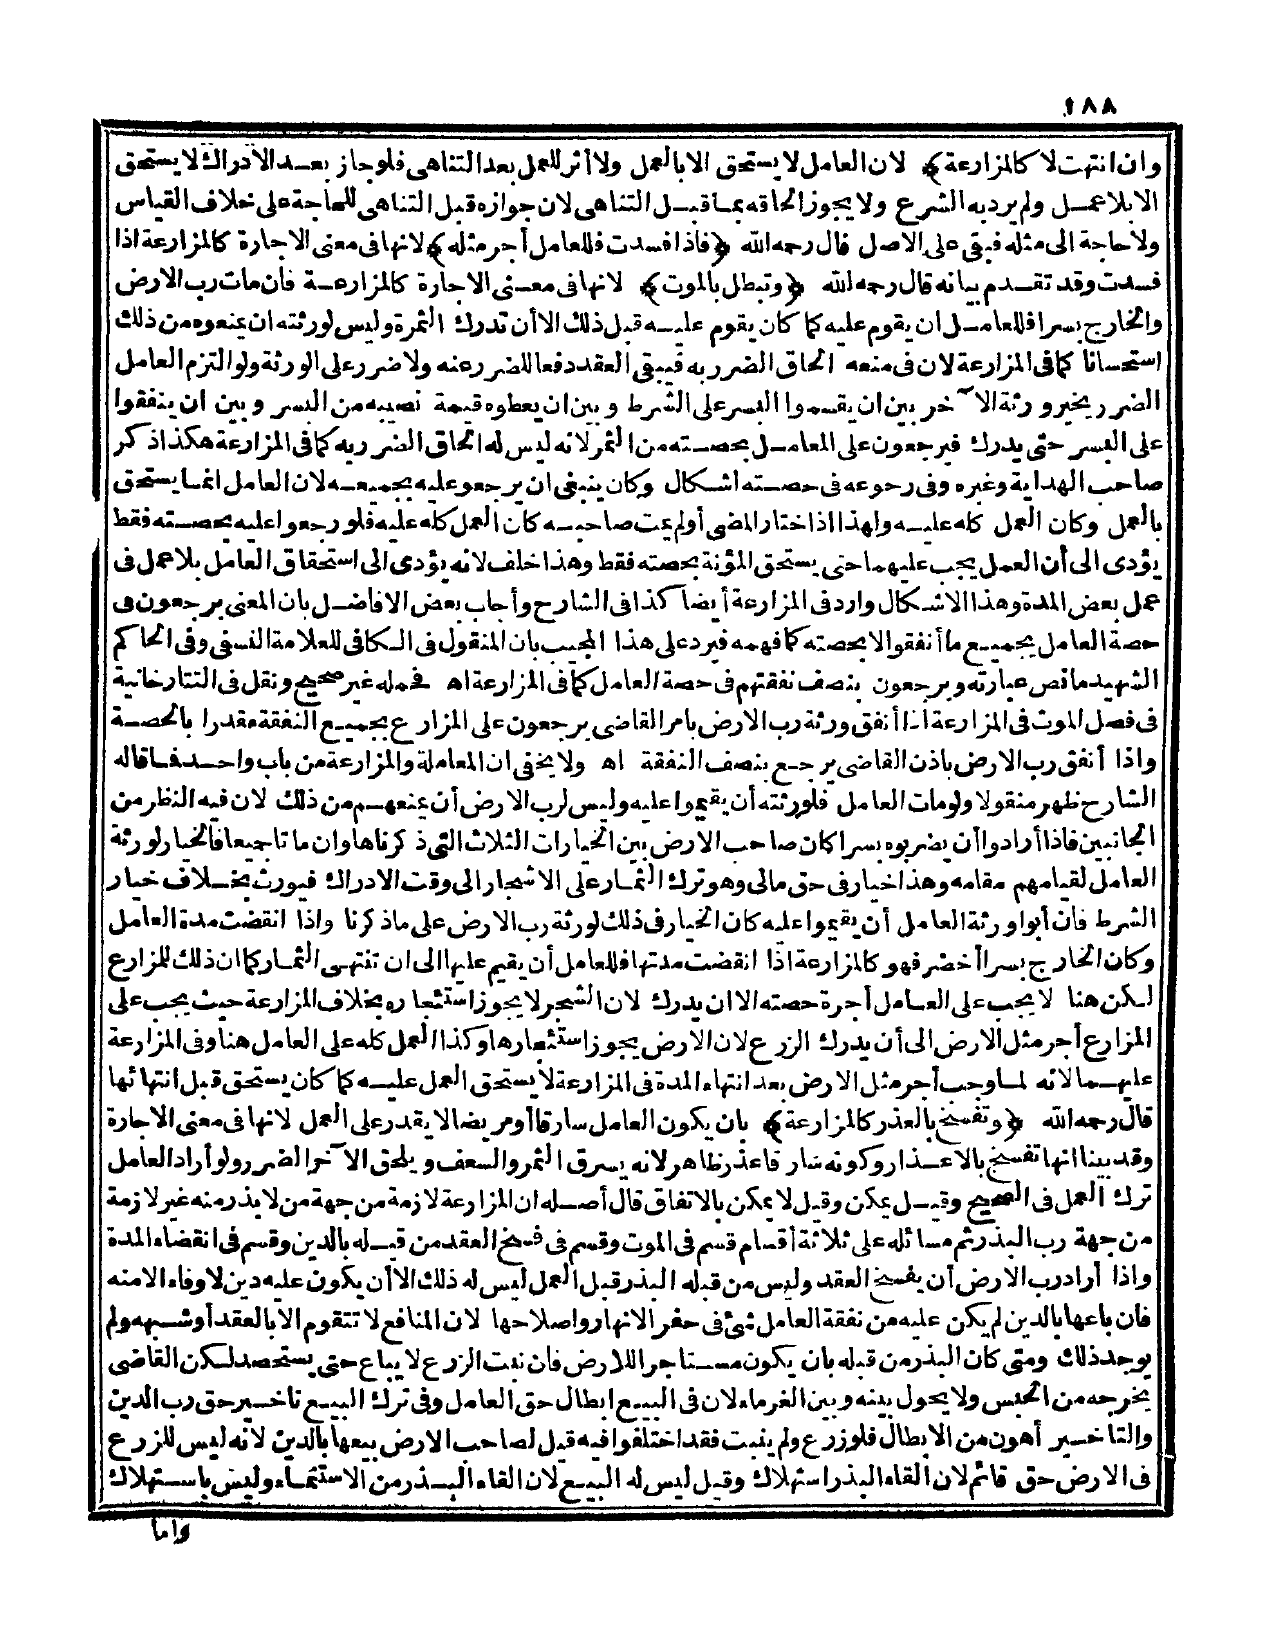 ١٨٨
وان انتهت لا كالمزارعة﴾ لان العامل لا يستحق الا بالعمل ولا أثر للعمل بعد التناهى فلو جاز بعد الادراك لا يستحق
الا بلا عمل ولم يرد به الشرع ولا يجوز الحاقه بما قبل التناهى لان جوازه قبل التناهى للحاجة على خلاف القياس
ولا حاجة الى مثله فبقى على الاصل قال رحمه الله ﴿فاذا فسدت فللعامل أجر مثله﴾ لانها فى معنى الاجارة كالمزارعة اذا
فسدت وقد تقدم بيانه قال رحمه الله ﴿وتبطل بالموت﴾ لانها فى معنى الاجارة كالمزارعة فان مات رب الارض
والخارج بسرا فللعامل ان يقوم عليه كما كان يقوم عليه قبل ذلك الا أن تدرك الثمرة وليس لورثته ان يمنعوه من ذلك
استحسانا كما فى المزارعة لان فى منعه الحاق الضرر به فيبقى العقد دفعا للضرر عنه ولا ضرر على الورثة ولو التزم العامل
الضرر يخير ورثة الآخر بين ان يقسموا البسر على الشرط وبين ان يعطوه قيمة نصيبه من البسر وبين ان ينفقوا
على البسر حتى يدرك فيرجعون على العامل بحصته من الثمر لانه ليس له الحاق الضرر به كما فى المزارعة هكذا ذكر
صاحب الهداية وغيره وفى رجوعه فى حصته اشكال وكان ينبغى ان يرجعو عليه بجميعه لان العامل انما يستحق
بالعمل وكان العمل كله عليه ولهذا اذا اختار المضى أو لم يمت صاحبه كان العمل كله عليه فلو رجعوا عليه بحصته فقط
يؤدى الى أن العمل يجب عليهما حتى يستحق المؤنة بحصته فقط وهذا خلف لانه يؤدى الى استحقاق العامل بلا عمل فى
عمل بعض المدة وهذا الاشكال وارد فى المزارعة أيضا كذا فى الشارح وأجاب بعض الافاضل بان المعنى يرجعون فى
حصة العامل بجميع ما أنفقوا لا بحصته كما فهمه فيرد على هذا المجيب بان المنقول فى الكافى للعلامة النسفى وفى الحاكم
الشهيد ما نص عبارته ويرجعون بنصف نفقتهم فى حصة العامل كما فى المزارعة اه فحمله غير صحيح ونقل فى التتارخانية
فى فصل الموت فى المزارعة اذا أنفق ورثة رب الارض بامر القاضى يرجعون على المزارع بجميع النفقة مقدرا بالحصة
واذا أنفق رب الارض باذن القاضى يرجع بنصف النفقة اه ولا يخفى ان المعاملة والمزارعة من باب واحد فما قاله
الشارح ظهر منقولا ولو مات العامل فلورثته أن يقيموا عليه وليس لرب الارض أن يمنعهم من ذلك لان فيه النظر من
الجانبين فاذا أرادوا أن يضربوه بسرا كان صاحب الارض بين الخيارات الثلاث التى ذكرناها وان ماتا جميعا فالخيار لورثة
العامل لقيامهم مقامه وهذا خيار فى حق مالى وهو ترك الثمار على الاشجار الى وقت الادراك فيورث بخلاف خيار
الشرط فان أبوا ورثة العامل أن يقيموا عليه كان الخيار فى ذلك لورثة رب الارض على ما ذكرنا واذا انقضت مدة العامل
وكان الخارج بسرا أخضر فهو كالمزارعة اذا انقضت مدتها فللعامل أن يقيم عليها الى ان تنتهى الثمار كما ان ذلك للمزارع
لكن هنا لا يجب على العامل أجرة حصته الا ان يدرك لان الشجر لا يجوز استئجاره بخلاف المزارعة حيث يجب على
المزارع أجر مثل الارض الى أن يدرك الزرع لان الارض يجوز استئجارها وكذا العمل كله على العامل هنا وفى المزارعة
عليهما لانه لما وجب أجر مثل الارض بعد انتهاء المدة فى المزارعة لا يستحق العمل عليه كما كان يستحق قبل انتهائها
قال رحمه الله ﴿وتفسخ بالعذر كالمزارعة﴾ بان يكون العامل سارقا أو مريضا لا يقدر على العمل لانها فى معنى الاجارة
وقد بينا انها تفسخ بالاعذار وكونه سارقا عذر ظاهر لانه يسرق الثمر والسعف ويلحق الآخر الضرر ولو أراد العامل
ترك العمل فى الصحيح وقيل يمكن وقيل لا يمكن بالاتفاق قال أصله ان المزارعة لازمة من جهة من لا بذر منه غير لازمة
من جهة رب البذر ثم مسائله على ثلاثة أقسام قسم فى الموت وقسم فى فسخ العقد من قبله بالدين وقسم فى انقضاء المدة
واذا أراد رب الارض أن يفسخ العقد وليس من قبله البذر قبل العمل ليس له ذلك الا أن يكون عليه دين لا وفاء الا منه
فان باعها بالدين لم يكن عليه من نفقة العامل شئ فى حفر الانهار واصلاحها لان المنافع لا تتقوم الا بالعقد أو شبهه ولم
يوجد ذلك ومتى كان البذر من قبله بان يكون مستاجرا للارض فان نبت الزرع لا يباع حتى يستحصد لكن القاضى
يخرجه من الحبس ولا يحول بينه وبين الغرماء لان فى البيع ابطال حق العامل وفى ترك البيع تاخير حق رب الدين
والتاخير أهون من الابطال فلو زرع ولم ينبت فقد اختلفوا فيه قيل لصاحب الارض بيعها بالدين لانه ليس للزرع
فى الارض حق قائم لان القاء البذر استهلاك وقيل ليس له البيع لان القاء البذر من الاستنماء وليس باستهلاك
واما